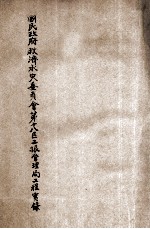 國民政府救濟水災委員會第十八區工賑管理局工程實錄